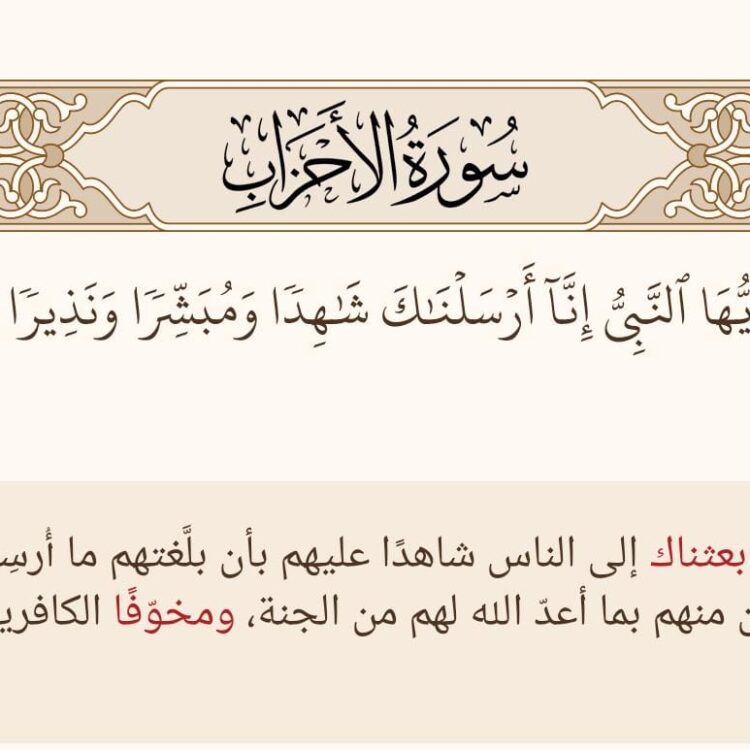 سُورَةُ الأَحْزَابِ
يُّهَا ٱلنَّبِيُّ إِنَّآ أَرْسَلْنَٰكَ شَٰهِدًا وَمُبَشِّرًا وَنَذِيرًا
بعثناك إلى الناس شاهدًا عليهم بأن بلَّغتهم ما أُرسِ
منهم بما أعدّ الله لهم من الجنة، ومخوّفًا الكافري